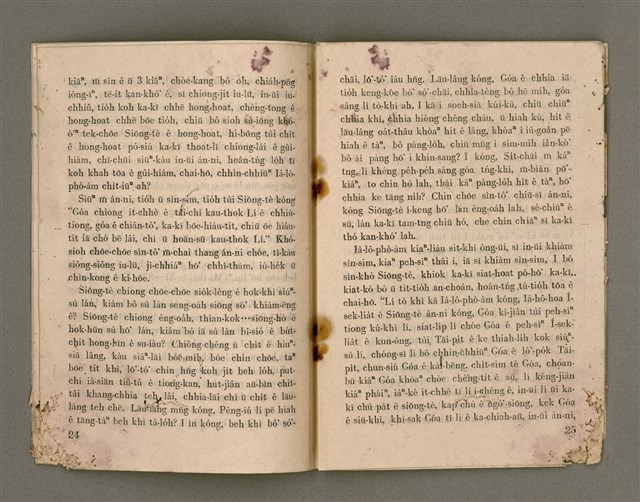 kiāⁿ, m̄ sìn ê ū 3 kiāⁿ, chòe-kang bô òh, chiàh-pn̄g
iông-īⁿ, tē-it kan-khó͘ ê, sī chiong-jit iu-lū, in-ūi iu-
chhiû, tiòh koh ka-kī chhē hong-hoat, chèng-tong ê
hong-hoat chhē bōe tiòh, chiū bô sioh sú-iōng khó-
òⁿ tek-chōe Siōng-tè ê hong-hoat, hi-bōng tùi chit
ê hong-hoat pó-siú ka-kī thoat-lī chiong-lâi ê gûi-
hiám, chì-chūi siūⁿ-káu in-ūi án-ni, hoán-tńg lòh tī
koh khah tōa ê gûi-hiám, chai-hō, chhin-chhiūⁿ Iâ-lô-
phò-âm chit-iūⁿ ah?
Siūⁿ m̄ án-ni, tiòh ū sìn-sim, tiòh tùi Siōng-tè kóng
"Góa chiong it-chhè ê tāi-chì kau-thok Lí ê chhiú-
tiong, góa ê chiân-tô͘, ka-kī bōe-hiáu-tit, chiū ōe hiáu-
tit iā chò bē lâi, chí ū hoân-sū kau-thok Lí." Khó-
sioh chōe-chōe sìn-tô͘ m̄-chai thang án-ni chòe, tì-kàu
siông-siông iu-lū, jî-chhiáⁿ hō͘ chhì-thàm, iú-hék ū
chìn-kong ê ki-hōe.
Siōng-tè chiong chōe-chōe siók-lêng ê hok-khì siúⁿ-
sù lán, kiám bô sù lán seng-oáh siōng só͘ khiàm-ēng
ê? Siōng-tè chiong éng-oáh, thian-kok···siōng-hó ê
hok-hūn sù hō͘ lán, kiám bô iā sù lán bî-siò ê bùt-
chit hong-bīn ê su-iàu? Chiông-chêng ū chit ê hiuⁿ-
siā lâng, káu siâⁿ-lāi bóe-mih, bóe chin chōe, taⁿ
bōe tit khí, lō͘-tô͘ chin hn̄g koh jit beh lòh, put-
chí iá-siān tiû-tû ê tiong-kan, hut-jiân aū-bīn chit-
tâi khang-chhia teh lâi, chhia-lāi chí ū chit ê lāu-
lâng teh chē. Lāu-lâng mn̄g kóng, Pêng-iú lí pē hiah
ê tāng-táⁿ beh khì tá-lòh? I ìn kóng, beh khì bó͘ só͘-
24
chāi, lō͘-tô͘ iáu hn̄g. Lāu-lâng kóng, Góa ê chhia iā
tiòh keng-kòe bó͘ só͘-chāi, chhia-téng bô hē mih, góa
sàng lí tò-khì ah. I kā i soeh-siā kúi-kù, chiū chiūⁿ
chhia khì, chhia hiòng chêng cháu, ū hiah kú, hit ê
lāu-lâng oàt-thâu khòaⁿ hit ê lâng, khòaⁿ i iû-goân pē
hiah ê tàⁿ, bô pàng-lòh, chiū mn̄g i sím-mih iân-kò͘
bô ài pàng hō͘ i khin-sang? I kóng, Sit-chāi m̄ káⁿ
tng, lí khéng péh-péh sàng góa tńg-khì, m̄-biān pó͘-
kiâⁿ, to chin hó lah, thài káⁿ pàng-lòh hit ê tàⁿ, hō͘
chhia ke tāng nih? Chin chōe sìn-tô͘ chiū-sī án-ni,
kóng Siōng-tè í-keng hō͘ lán éng-oáh lah, sè-chiūⁿ ê
sū, lán ka-kī tam-tng chiū hó, che chin chiàⁿ sī ka-kī
thó kan-khó͘ lah.
Iâ-lô-phò-âm kiaⁿ-liáu sit-khì ông-ūi, sī in-ūi khiàm
sìn-sim, kiaⁿ peh-sìⁿ thâi i, iā sī khiàm sìn-sim, I bô
sìn-khò Siōng-tè, khiok ka-kī siat-hoat pó-hō͘ ka-kī,
kiat-kó bô ū tit-tiòh an-choân, hoán-tńg tú-tiòh tōa ê
chai-hō. "Lí tò khì kā Iâ-lô-phò-âm kóng, Iâ-hô-hoa Í-
sek-liát ê Siōng-tè án-ni kóng, Góa kì-jiân tùi peh-sìⁿ
tiong kú-khí lí, siat-lip lí chòe Góa ê peh-sìⁿ Í-sek-
liát ê kun-ông, tùi Tāi-pit ê ke thiah-lih kok siúⁿ-
sù lí, chóng-sī lí bô chhin-chhiūⁿ Góa ê lô͘-pók Tāi-
pit, chun-siú Góa ê kài-bēng, chit-sim tè Góa, choan-
bū kiâⁿ Góa khòaⁿ chòe chèng-tit ê sū, lí kéng-jiân
kiâⁿ pháiⁿ, iâⁿ-kè it-chhè tī lí í-chêng ê, in-ūi lí ūi ka-
kī chú pát ê siōng-tè, kap chù ê ngó͘-siōng, kek Góa
ê siū-khì, khì-sak Góa tī lí ê ka-chiah-aū, in-ūi án-ni,
25